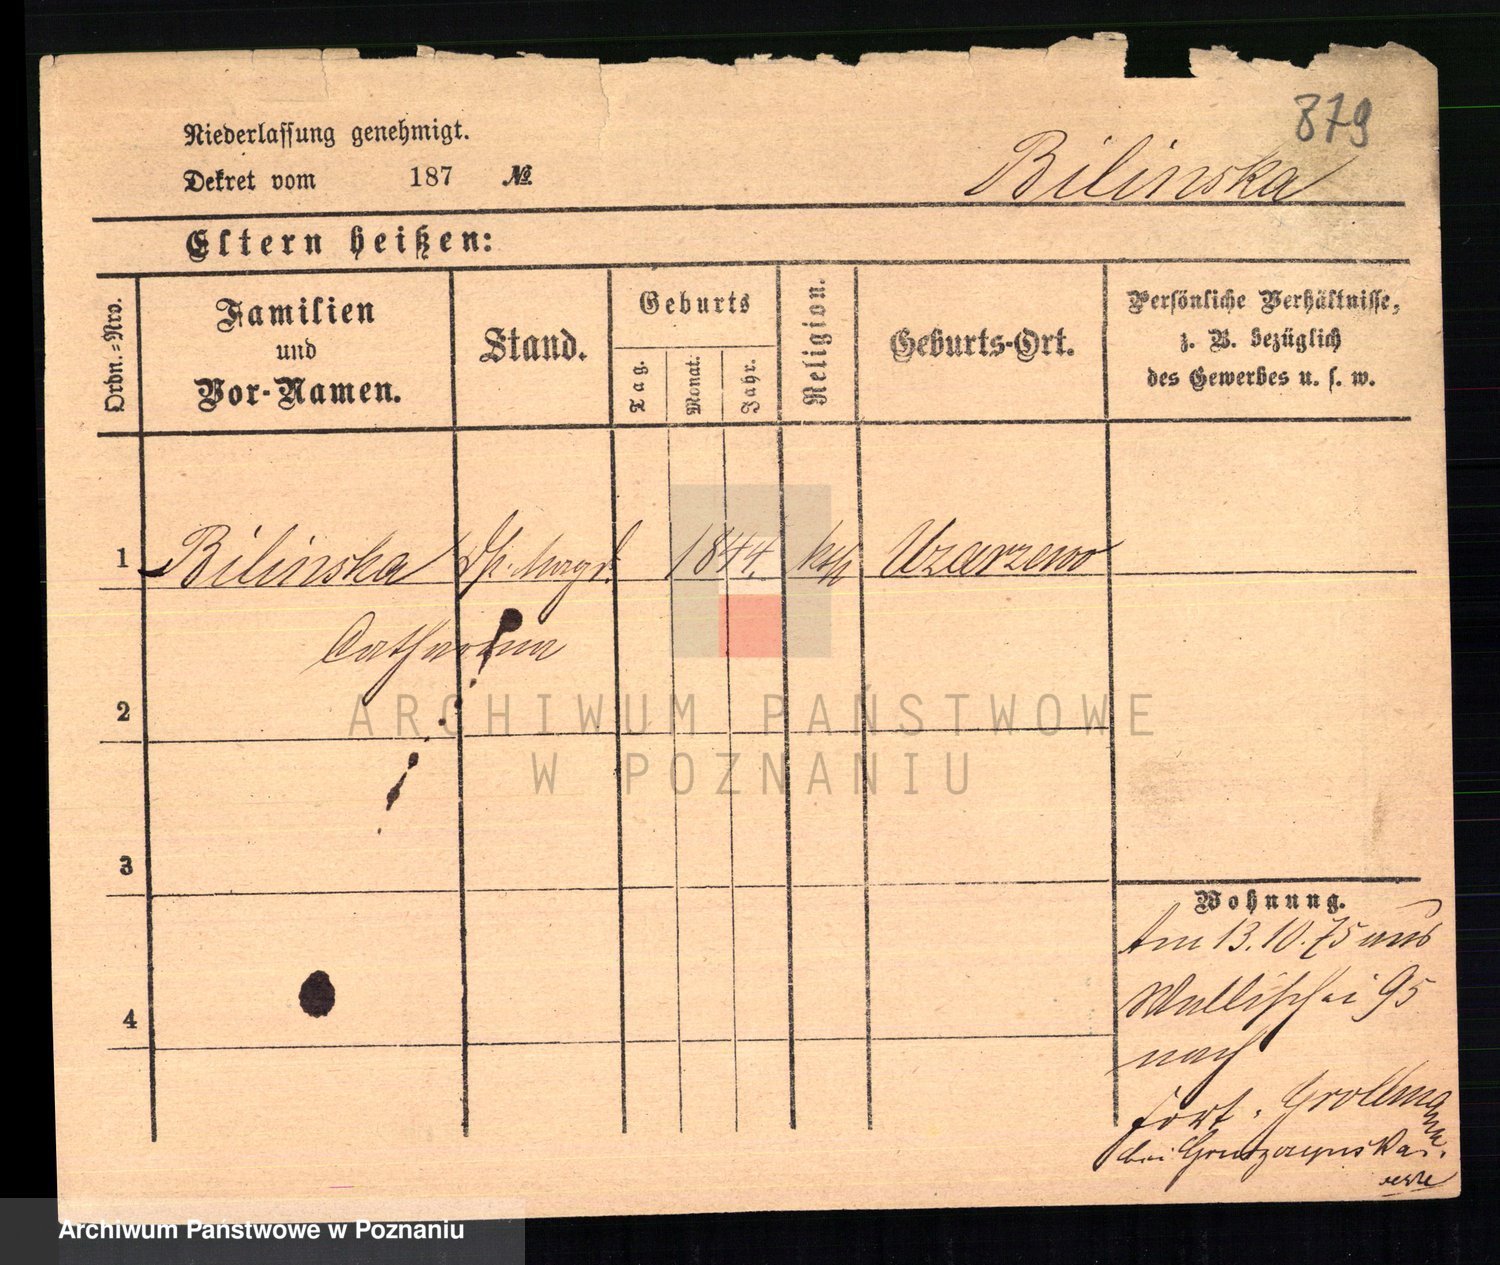 879
Niederlassung genehmigt.
Dekret vom 187 №
Bilinska
Eltern heißen:
Ordn.-Nro.
Familien
und
Vor-Namen.
Stand.
Geburts
Tag.
Monat.
Jahr.
Religion.
Geburts-Ort.
Persönliche Verhältnisse,
z. B. bezüglich
des Gewerbes u. s. w.
1 Bilinska 1844. kath Uzarzewo
Catharina
2
3
4
Wohnung.
Am 13.10.75 aus
Wallischei 95
nach
Fort. Grollmann
bei
ARCHIWUM PAŃSTWOWE
W POZNANIU
Archiwum Państwowe w Poznaniu